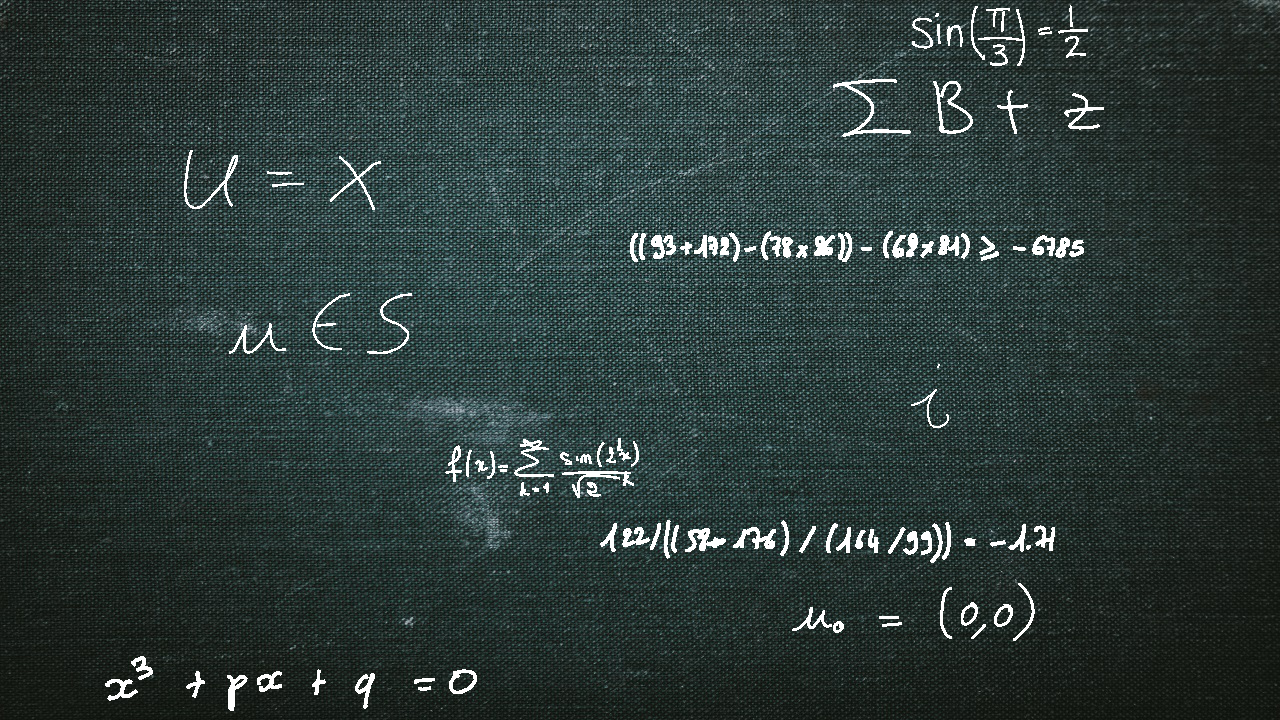 sin(π/3) = 1/2
∑ B + z
U = X
((93+172)-(78×26))-(62×81) ≥ -6785
u ∈ S
i
f(x)=∑_{k=1}^{∞} sin(2^k x)/√2^k
122/((58-176)/(164/99)) = -1.71
u₀ = (0,0)
x³ + px + q = 0